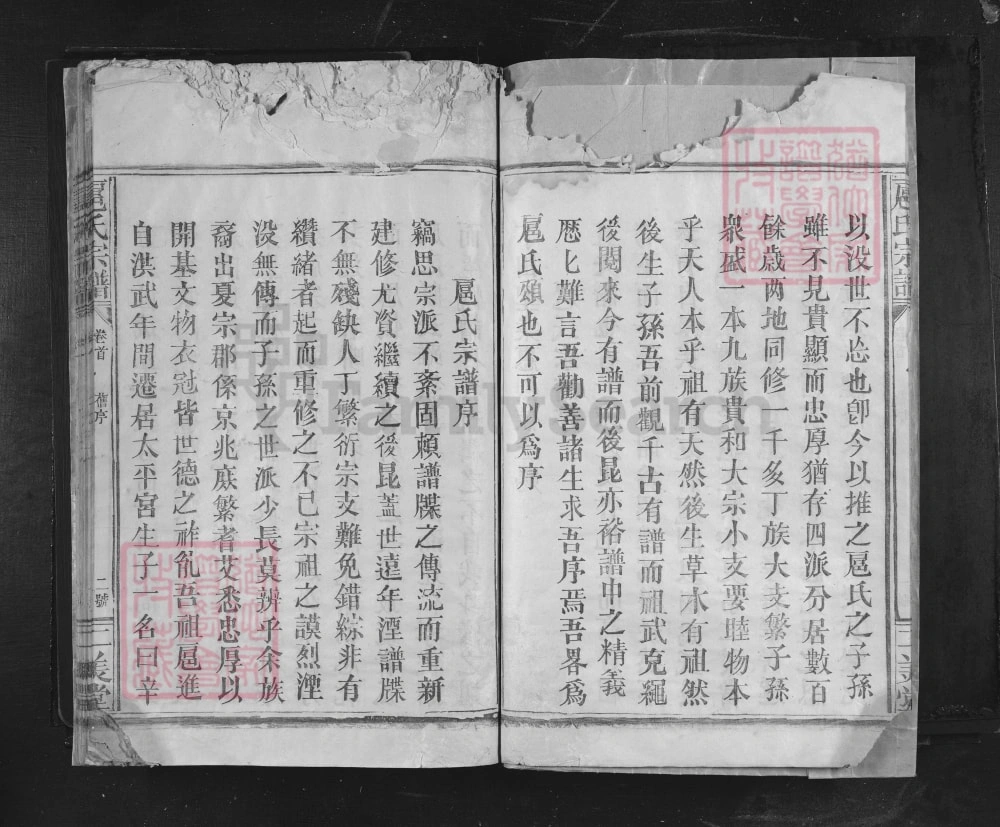 以没世不忘也卽今以推之扈氏之子孫
雖不見貴顯而忠厚猶存四派分居數百
餘歲两地同修一千多丁族大支繁子孫
衆盛一本九族貴和大宗小支要睦物本
乎天人本乎祖有天然後生草木有祖然
後生子孫吾前觀千古有譜而祖武克繩
後閱來今有譜而後昆亦裕譜中之精義
歷匕難言吾勸善諸生求吾序焉吾畧為
扈氏頌也不可以爲序
扈氏宗譜序
竊思宗派不紊固賴譜牒之傳流而重新
建修尤資繼續之後昆蓋世遠年湮譜牒
不無殘缺人丁繁衍宗支難免錯綜非有
纘緒者起而重修之不已宗祖之謨烈湮
没無傳而子孫之世派少長莫辨乎余族
裔出夏宗郡係京兆庶繁耆艾悉忠厚以
開基文物衣冠皆世德之祚胤吾祖扈進
自洪武年間遷居太平宮生子一名曰辛
扈氏宗譜
卷首
舊序
二號
扈氏宗譜